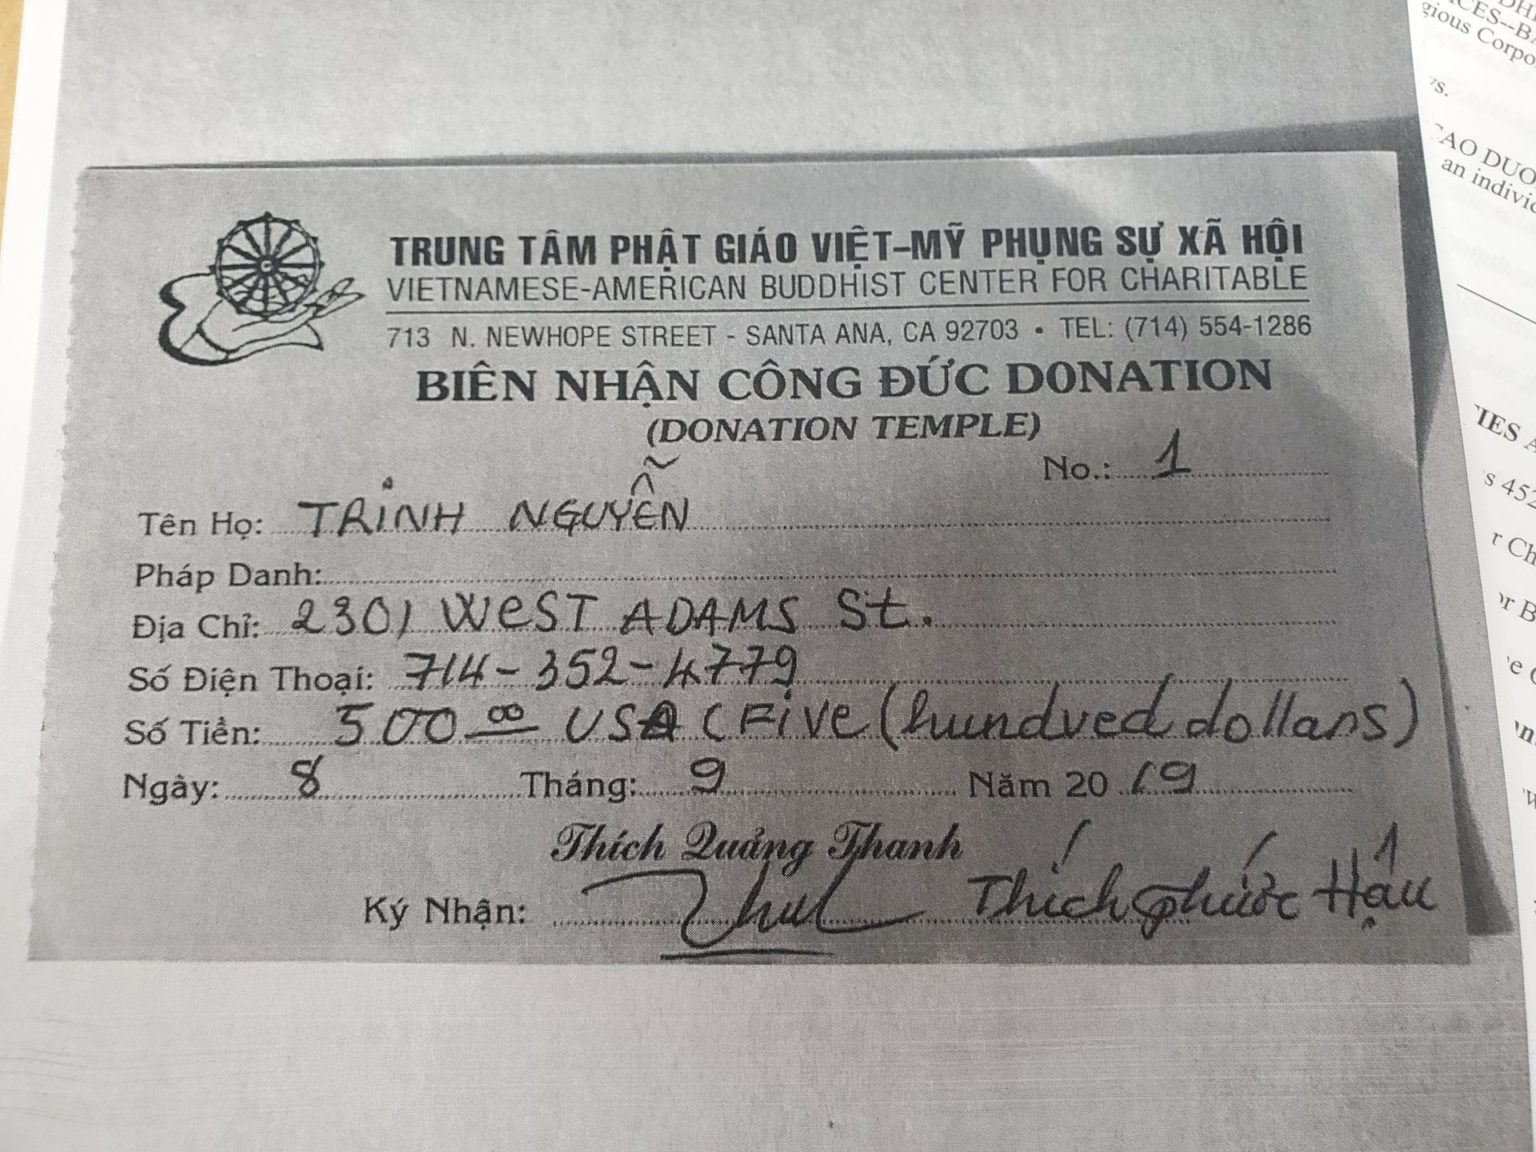 TRUNG TÂM PHẬT GIÁO VIỆT-MỸ PHỤNG SỰ XÃ HỘI
VIETNAMESE-AMERICAN BUDDHIST CENTER FOR CHARITABLE
713 N. NEWHOPE STREET - SANTA ANA, CA 92703 • TEL: (714) 554-1286
BIÊN NHẬN CÔNG ĐỨC DONATION
(DONATION TEMPLE)
No.: 1
Tên Họ: TRINH NGUYỄN
Pháp Danh:
Địa Chỉ: 2301 WeST ADAMS St.
Số Điện Thoại: 714-352-4779
Số Tiền: 500 00 USA (FiVe (hundred dollars)
Ngày: 8 Tháng: 9 Năm 20 19
Thích Quảng Thanh
Ký Nhận: Thích Phước Hậu
gious Corpo
CAO DUO
an individ
IES A
s 452
r Ch